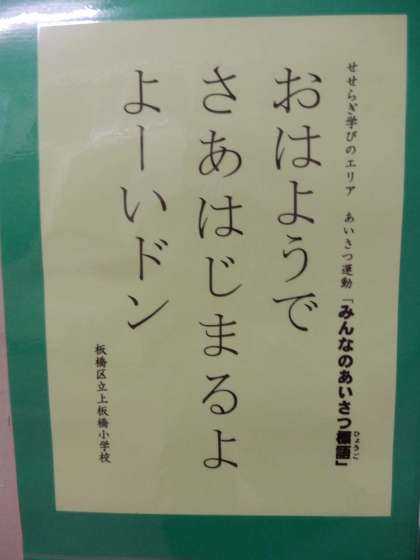 せせらぎ学びのエリア　あいさつ運動「みんなのあいさつ標語」
ひょうご
おはようで
さあはじまるよ
よーいドン
板橋区立上板橋小学校